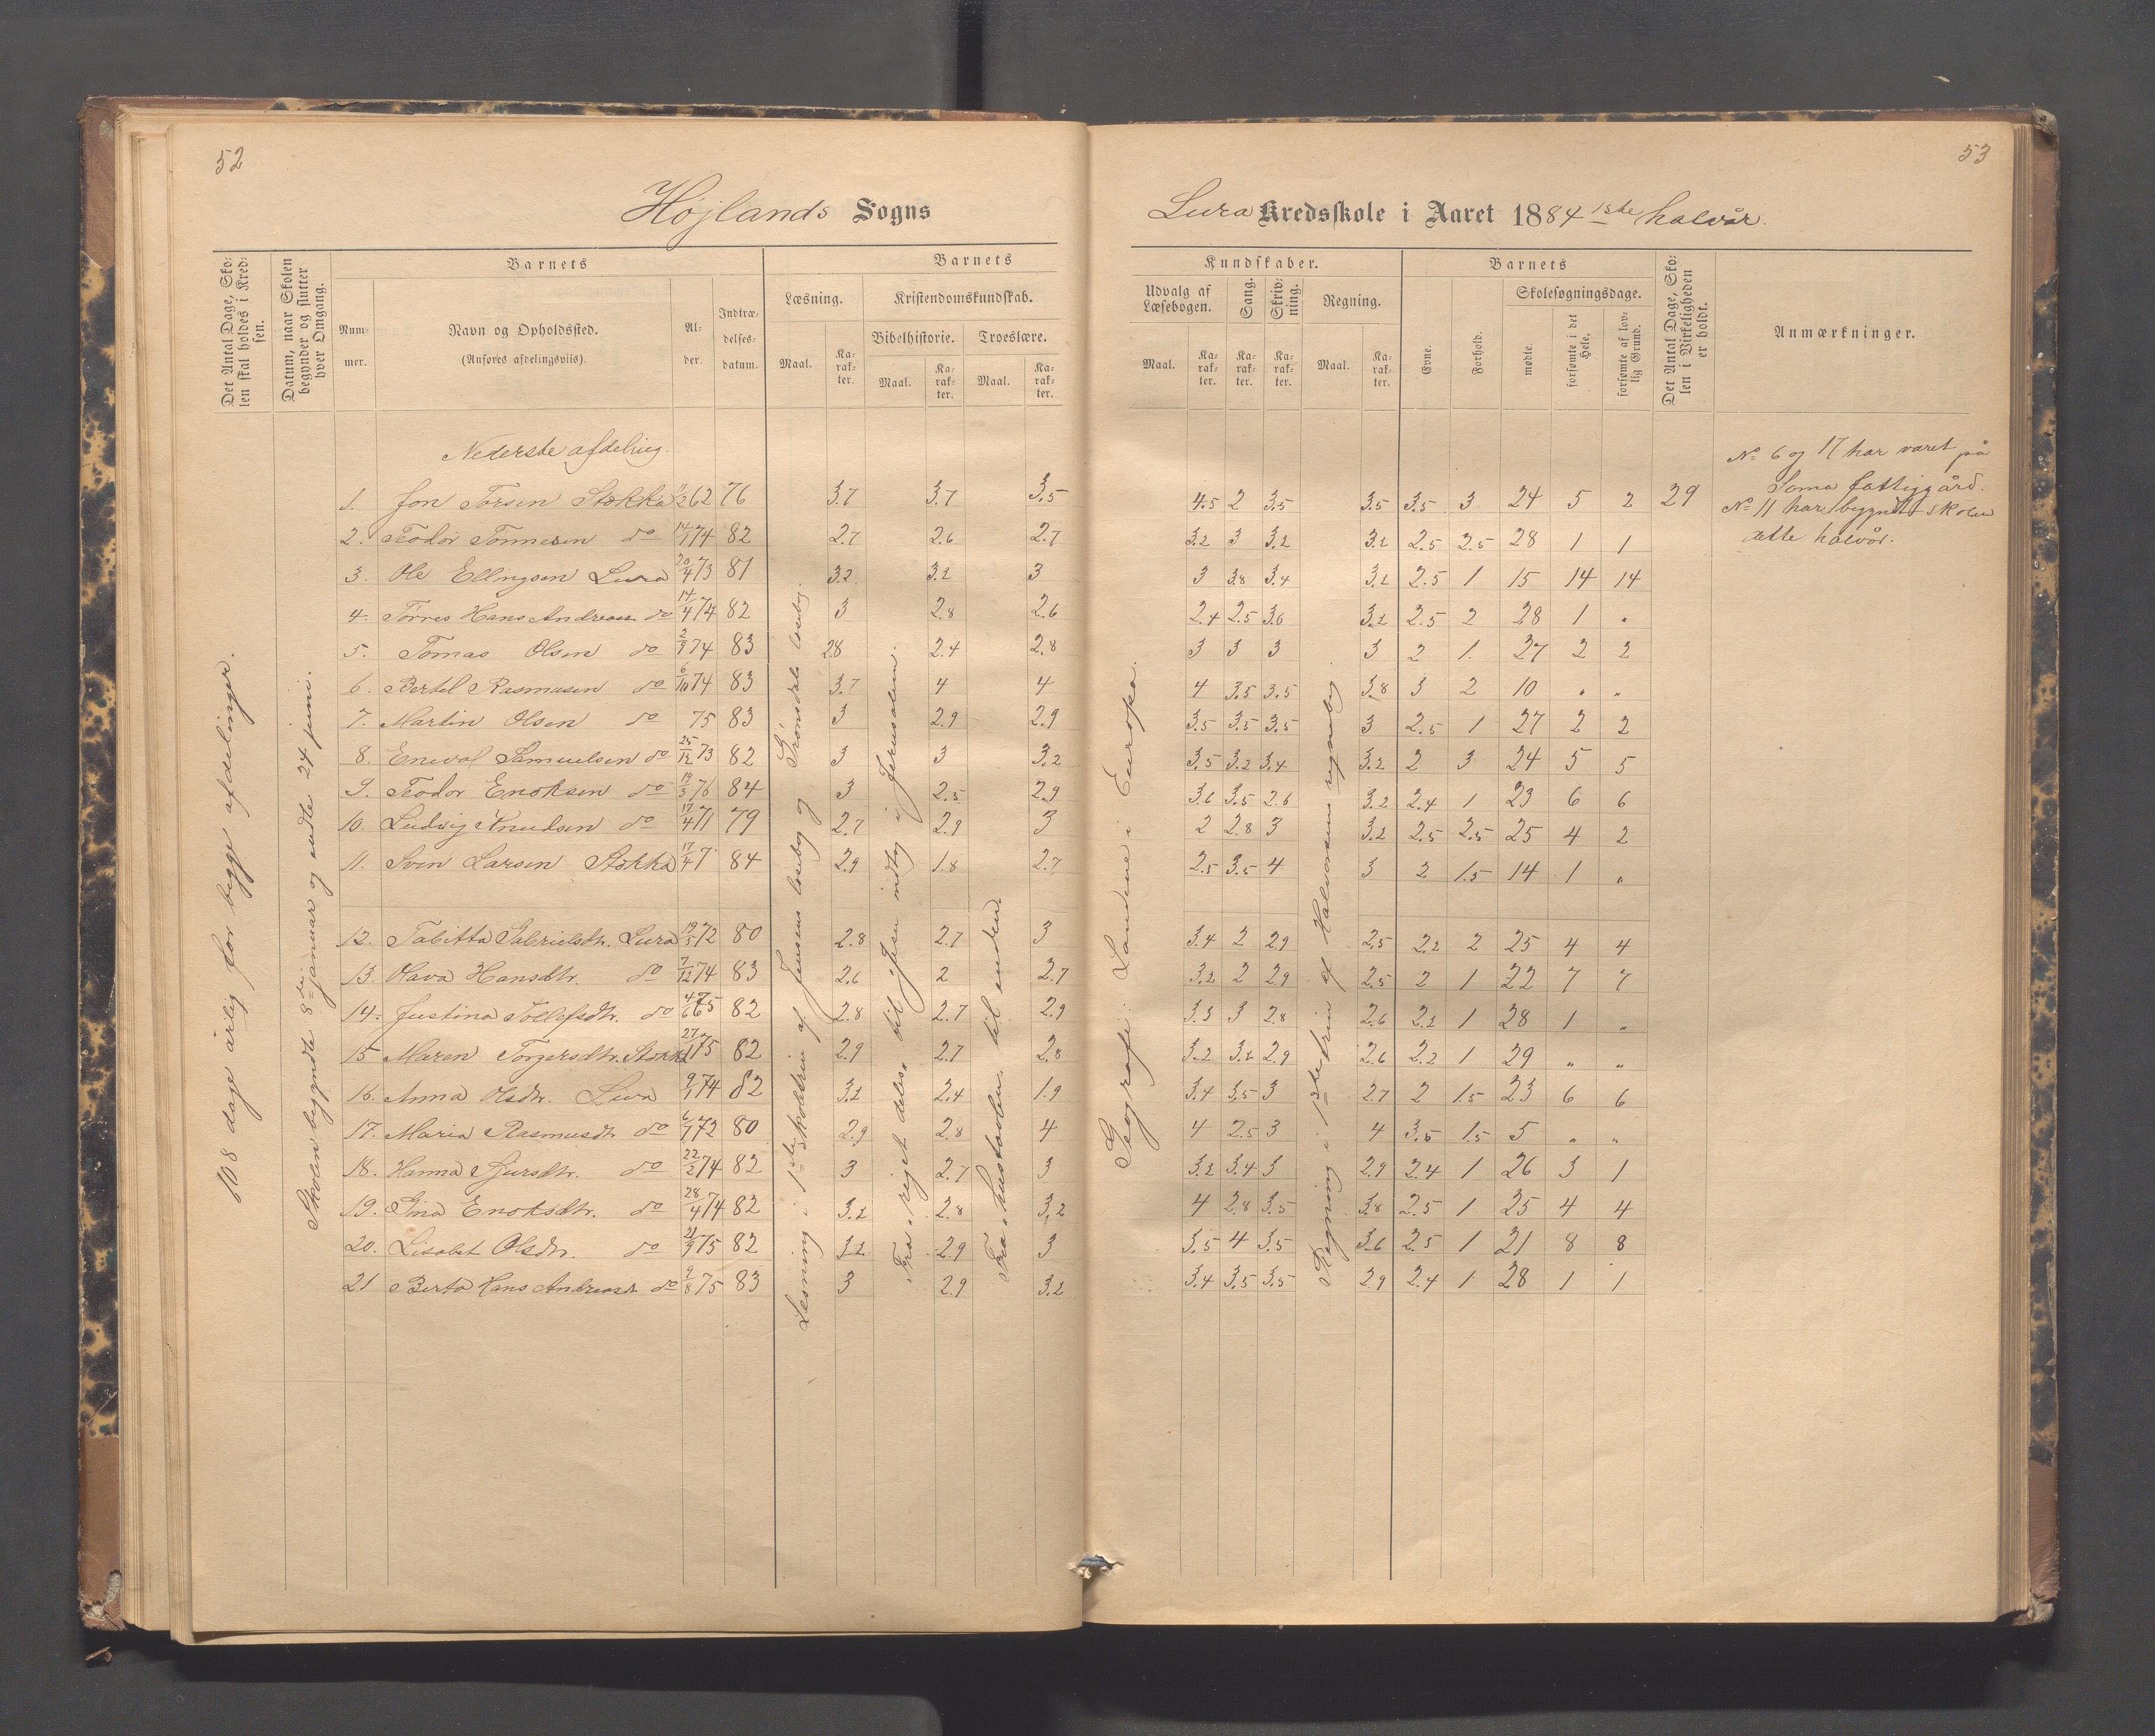 52
53
Højlands Sogns
Lura Kredsskole i Aaret 1884 1ste halvår.
Det Antal Dage, Skolen skal holdes i Kredsen.
Datum, naar Skolen begynder og slutter hver Omgang.
Barnets
Nummer.
Navn og Opholdssted.
(Anføres afdelingsviis).
Alder.
Indtrædelsesdatum.
Barnets
Læsning.
Kristendomskundskab.
Bibelhistorie.
Troeslære.
Maal.
Karakter.
Maal.
Karakter.
Maal.
Karakter.
Kundskaber.
Udvalg af Læsebogen.
Sang.
Skrivning.
Regning.
Maal.
Karakter.
Karakter.
Karakter.
Maal.
Karakter.
Barnets
Evne.
Forhold.
Skolesøgningsdage.
mødte.
forsømte i det Hele.
forsømte af lovlig Grund.
Det Antal Dage, Skolen i Virkeligheden er holdt.
Anmærkninger.
108 dage årlig for begge afdelinger.
Skolen begyndte 8de januar og endte 24 juni.
Nederste afdeling.
Læsning i 1ste skoletrin af Jensens læsebog og
Fra riget deles til Jesu indtog i Jerusalem.
Fra hustavlen til enden.
Geografi: Landene i Europa.
Regning i 1ste trin af Halvorsens regnebog.
No 6 og 17 har været på
Soma fattiggård.
No 11 har begyndt skolen
dette halvår.
1. Jon Torsen Stokka 62 76 3.7 3.7 3.5 4.5 2 3.5 3.5 3.5 3 24 5 2 29
2. Teodor Tonnesen do 14/1 74 82 2.7 2.6 2.7 3.2 3 3.2 3.2 2.5 2.5 28 1 1
3. Ole Ellingsen Lura 20/4 73 81 3.2 3.2 3 3 3.8 3.4 3.2 2.5 1 15 14 14
4. Tørres Hans Andreas do 14/4 74 82 3 2.8 2.6 2.4 2.5 3.6 3.2 2.5 2 28 1 "
5. Tomas Olsen do 2/9 74 83 2.8 2.4 2.8 3 3 3 3 2 1. 27 2 2
6. Bertel Rasmusen do 6/10 74 83 3.7 4 4 4 3.5 3.5 3.8 3 2 10 " "
7. Martin Olsen do 75 83 3 2.9 2.9 3.5 3.5 3.5 3 2.5 1 27 2 2
8. Enevol Samuelsen do 25/12 73 82 3 3 3.2 3.5 3.2 3.4 3.2 2 3 24 5 5
9. Teodor Enoksen do 19/3 76 84 3 2.5 2.9 3.6 3.5 2.6 3.2 2.4 1 23 6 6
10. Ludvig Knudsen do 17/4 71 79 2.7 2.9 3 2 2.8 3 3.2 2.5 2.5 25 4 2
11. Sven Larsen Stokka 17/4 7 84 2.9 1.8 2.7 2.5 3.5 4 3 2 1.5 14 1 "
12. Tabitta Gabrielsdtr. Lura 19/5 72 80 2.8 2.7 3 3.4 2 2.9 2.5 2.2 2 25 4 4
13. Olava Hansdtr. do 7/12 74 83 2.6 2 2.7 3.2 2 2.9 2.5 2 1 22 7 7
14. Justina Tollefsdtr. do 4/6 75 82 2.8 2.7 2.9 3.3 3 2.8 2.6 2.2 1 28 1 "
15 Maren Torgersdtr. Stokka 75 82 2.9 2.7 2.8 3.2 3.2 2.9 2.6 2.2 1 29 " "
16. Anna Olsdtr. Lura 9/1 74 82 3.2 2.4 1.9 3.4 3.5 3 2.7 2 1.5 23 6 6
17. Maria Rasmusdt. do 6/7 72 80 2.9 2.8 4 4 2.5 3 4 3.5 1.5 5 " "
18. Hanna Sjursdtr. do 22/2 74 82 3 2.7 3 3.2 3.4 3 2.9 2.4 1 26 3 1
19. Gina Enoksdtr. do 28/4 74 82 3.2 2.8 3.2 4 2.8 3.5 3.8 2.5 1 25 4 4
20. Lisabet Olsdtr. do 21/9 75 82 3.2 2.9 3 3.5 4 3.5 3.6 2.5 1 21 8 8
21 Berta Hans Andreasdt. do 9/8 75 83 3 2.9 3.2 3.4 3.5 3.5 2.9 2.4 1 28 1 1